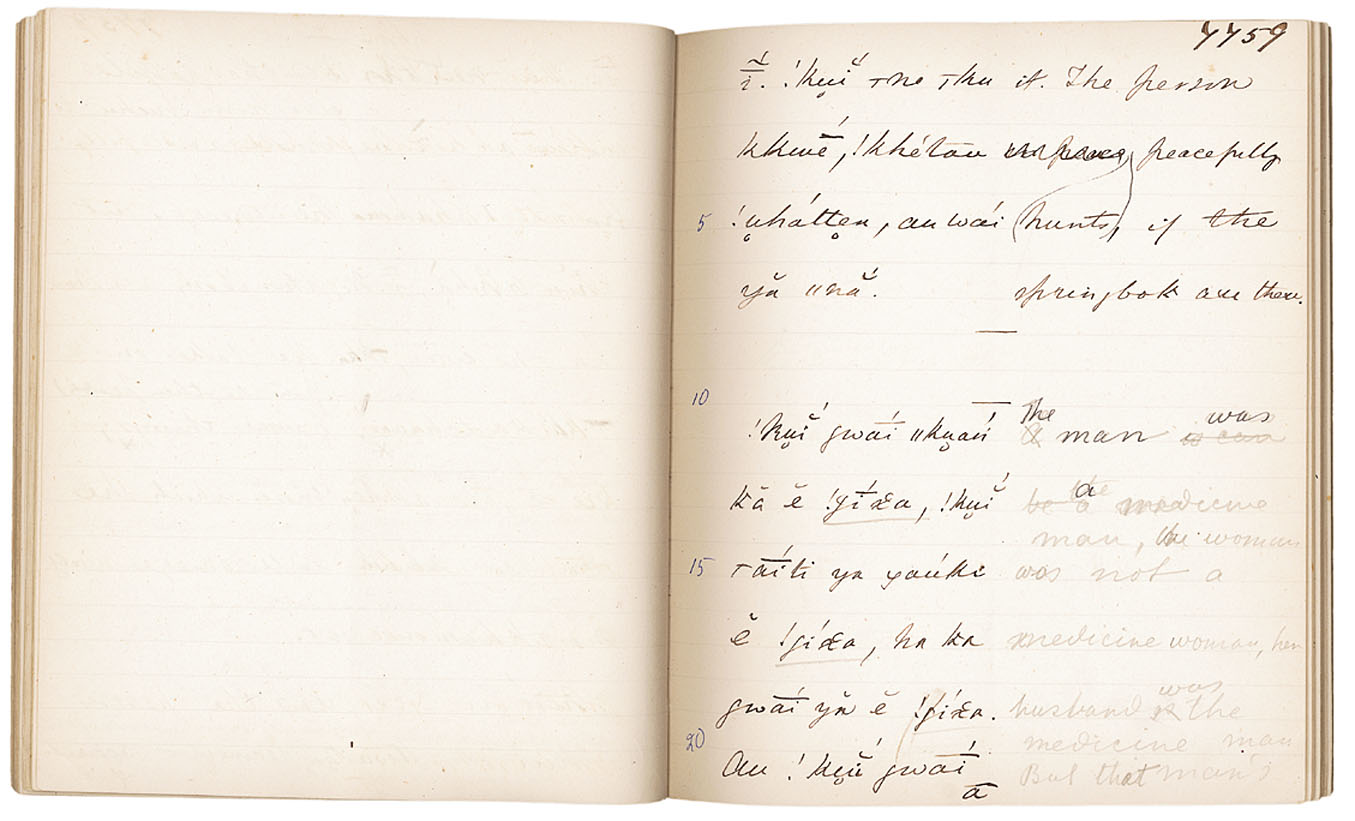 7759
ĭ. !kuĭ ⊤ne ⊤ku it. The person
kkuē, !khétau peacefully
5 !u̥háttẹn, au wái (hunts), if the
yă ǁnă. springbok are there.
10
!ku̥ĭ gwāi ǁku̥aṅ The man was
kă ĕ !gíxa, !ku̥ĭ a medicine
man, the woman
15 ⊤āíti ya φaúki was not a
ĕ !gíxa, ha ka medicine woman, her
gwāí yă ĕ !gíxa. husband was the
medicine man
20 Au !ku̥ĭ gwāí ā But that man's